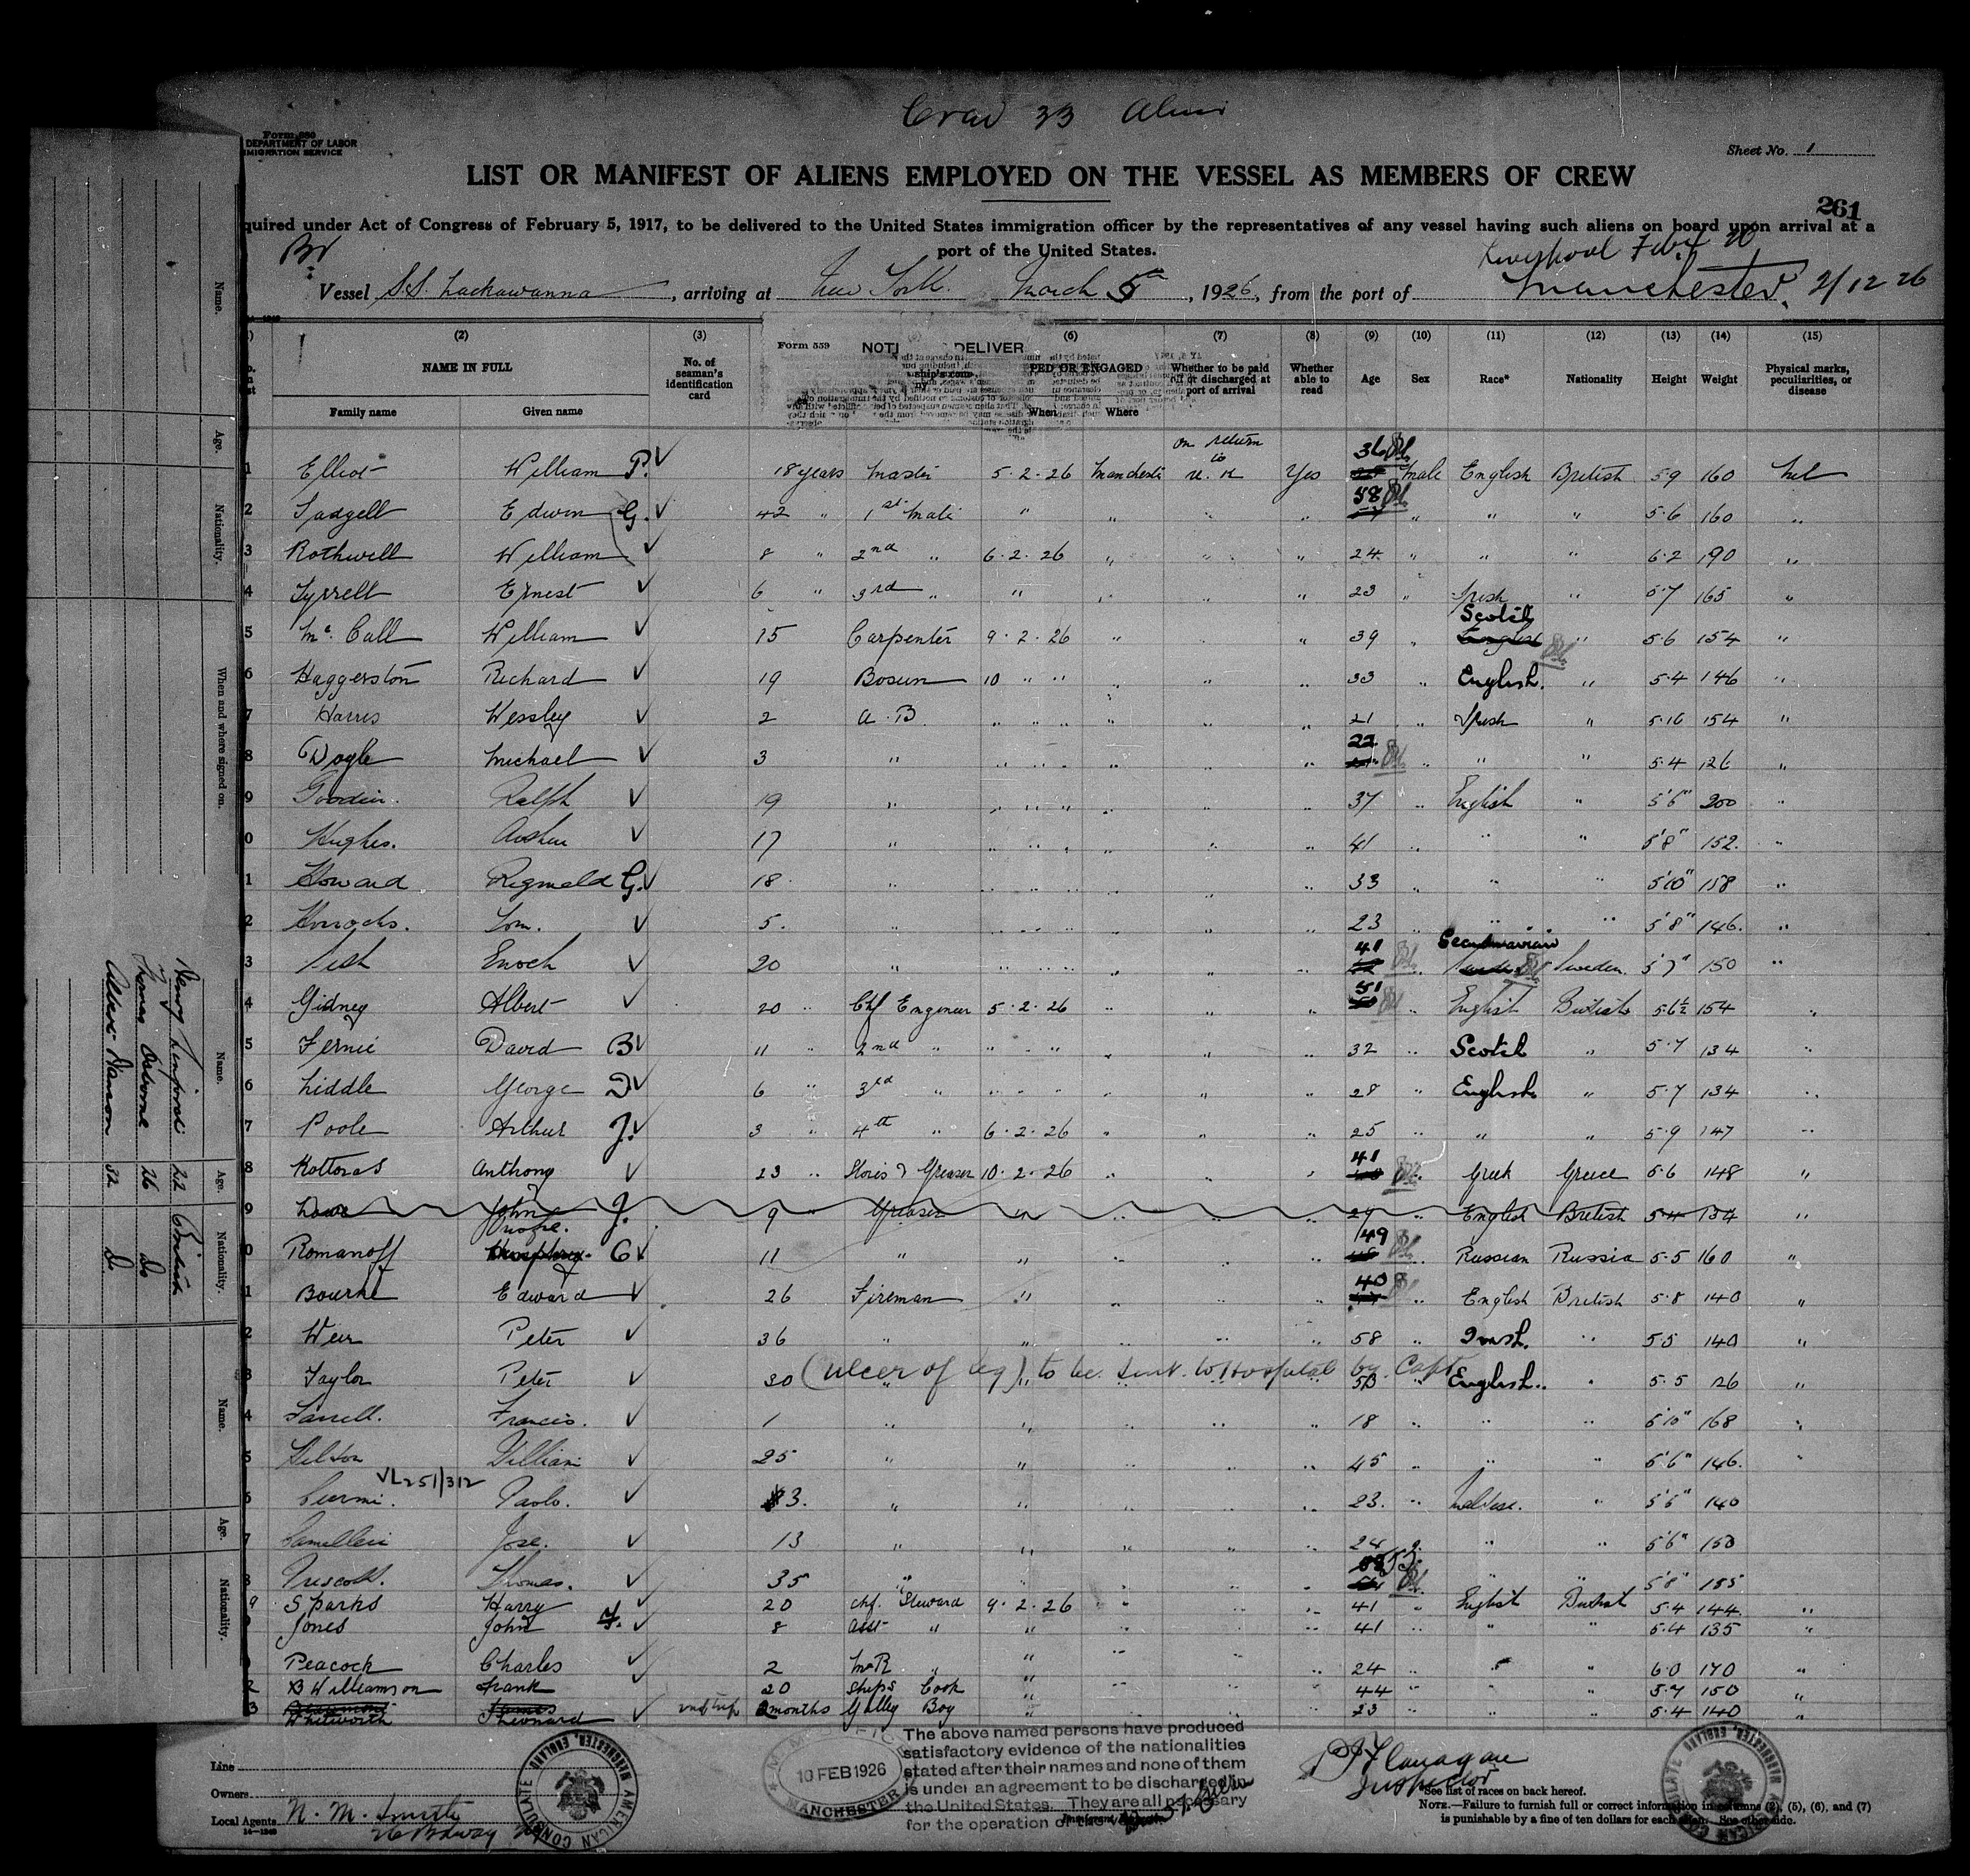 Crew 33 Aliens
Form 680
DEPARTMENT OF LABOR
IMMIGRATION SERVICE
Sheet No. 1
LIST OR MANIFEST OF ALIENS EMPLOYED ON THE VESSEL AS MEMBERS OF CREW
261
quired under Act of Congress of February 5, 1917, to be delivered to the United States immigration officer by the representatives of any vessel having such aliens on board upon arrival at a
port of the United States.
Br
Liverpool Feby 20
Vessel S.S. Lackawanna, arriving at New York. March 5th, 1926, from the port of Manchester. 2/12 26
(2) (3) (6) (7) (8) (9) (10) (11) (12) (13) (14) (15)
Form 559 NOTI DELIVER
NAME IN FULL No. of seaman's identification card PED OR ENGAGED Whether to be paid off or discharged at port of arrival Whether able to read Age Sex Race* Nationality Height Weight Physical marks, peculiarities, or disease
Family name Given name When Where
1 Elliot William P. 18 years Master 5.2.26 Manchester on return to U.K Yes 36 Male English British 5.9 160 Nil
2 Sadgell Edwin G. 42 " 1st Mate " " " " 58 " " " 5.6 160 "
3 Rothwell William 8 " 2nd " 6.2.26 " " " 24 " " " 6.2 190 "
4 Tyrrell Ernest 6 " 3rd " " " " " 23 " Irish " 5.7 165 "
5 Mc. Call William 15 Carpenter 9.2.26 " " " 39 " Scotch English " 5.6 154 "
6 Haggerston Richard 19 Bosun 10 " " " " " 33 " English. " 5.4 146 "
7 Harris Wessley 2 A.B. " " " " " " 21 " Irish " 5.10 154 "
8 Doyle Michael 3 " " " " " " " 22 " " " 5.4 126 "
9 Goodin. Ralph 19 " " " " " " " 37 " English " 5'6" 200 "
0 Hughes. Arthur 17 " " " " " " " 41 " " " 5'8" 152. "
1 Howard Reginald G. 18. " " " " " " " 33 " " " 5'10" 158 "
2 Horrocks. Tom. 5. " " " " " " " 23 " " " 5'8" 146. "
3 Enoch 20 " " " " " " " 41 " Scandinavian Sweden. 5'7" 150 "
4 Gidney Albert 20 " Chf Engineer 5.2.26 " " " 51 " English British 5.6½ 154 "
5 Fernie David B 11 " 2nd " " " " " " " 32 " Scotch " 5.7 134 "
6 Liddle George D 6 " 3rd " " " " " " " 28 " English. " 5.7 134 "
7 Poole Arthur J. 3 " 4th " 6.2.26 " " " 25 " " " 5.9 147 "
8 Kottoras Anthony 23 " Stores & Greaser 10.2.26 " " " 41 " Greek Greece 5.6 148 "
9 John J. 9 " Greaser " " " " 29 " English British 5.4 134 "
0 Romanoff Humphrey C 11 " " " " 49 " Russian Russia 5.5 160 "
1 Bourke Edward 26 Fireman " " " " 40 " English British 5.8 140 "
2 Weir Peter 36 " " " " " 58 " Irish. " 5.5 140 "
3 Taylor Peter 30 (ulcer of leg) to be sent to Hospital by Capt 53 English. " 5.5 126 "
4 Farrell. Francis. 1 " " " " " 18 " " " 5'10" 168 "
5 William 25 " " " " " 45 " " " 5'6" 146. "
VL251/312
6 Paolo. 3. " " " " " 23. " Maltese. " 5'6" 140
7 Camelleri Jose. 13 " " " " " 24 " " " 5'6" 150
8 Prescott. Thomas. 35 " " " " 53 " " " 5'8" 155
9 Sparks Harry 20 Chf. Steward 9.2.26 " " " 41 " English British 5.4 144. "
Jones John 8 Asst " " " " " 41 " " " 5.4 135 "
Peacock Charles 2 M.R. " " " " 24 " " " 6.0 170 "
2 Williamson Frank 20 Ships Cook " " 44 " " " 5.7 150 "
3 Whitworth Leonard months Galley Boy " 23 " " " 5.4 140 "
Name. Age. Nationality. When and where signed on.
Name. Age. Nationality.
Henry 22 British
Thomas Osborne 26 Do
Albert Hanson 32 Do
Name. Age. Nationality.
Line
Owners
Local Agents N. M. Smith
26 Bdway NY
14-1240
AMERICAN CONSULATE MANCHESTER, ENGLAND
10 FEB 1926
MANCHESTER
The above named persons have produced
satisfactory evidence of the nationalities
stated after their names and none of them
is under an agreement to be discharged in
the United States. They are all necessary
for the operation of the vessel.
P J Flanagan
Inspector
*See list of races on back hereof.
NOTE.—Failure to furnish full or correct information in columns (2), (5), (6), and (7)
is punishable by a fine of ten dollars for each alien. See other side.
AMERICAN CONSULATE MANCHESTER, ENGLAND